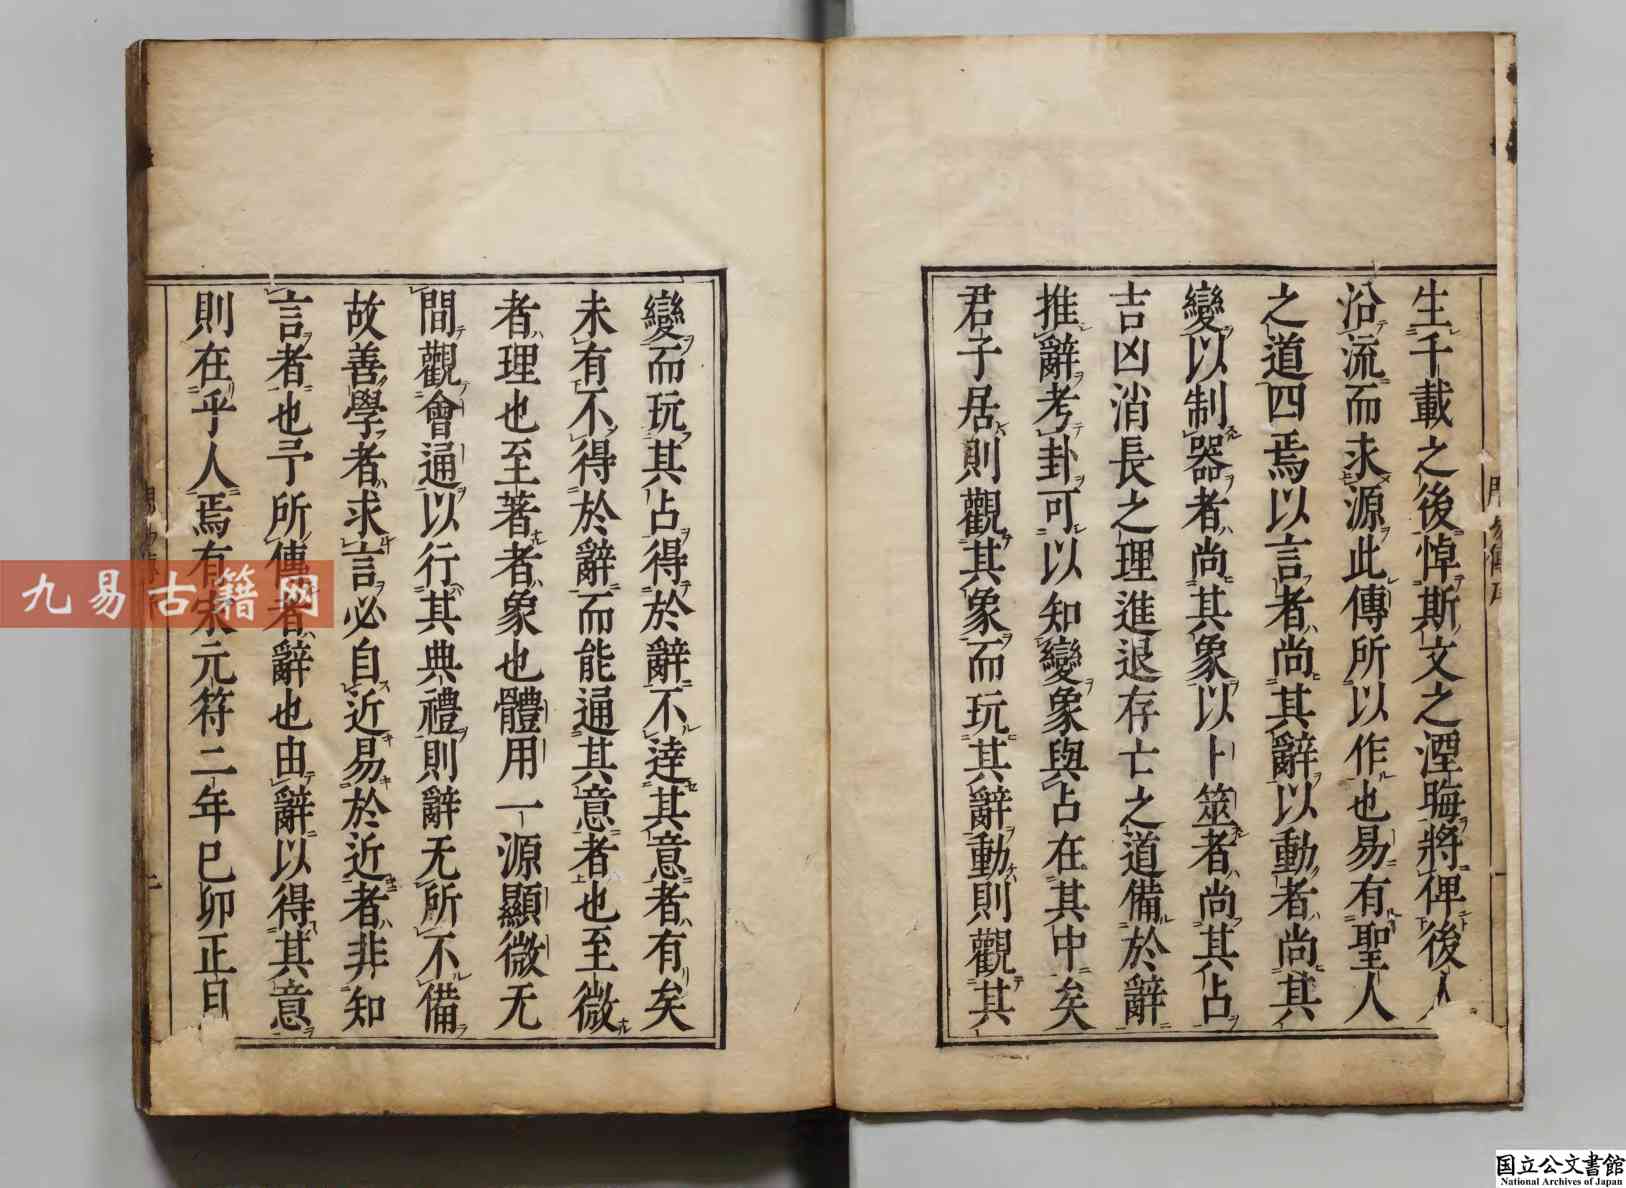 生千載之後悼斯文之湮晦將俾後人
沿流而求源此傳所以作也易有聖人
之道四焉以言者尚其辭以動者尚其
變以制器者尚其象以卜筮者尚其占
吉凶消長之理進退存亡之道備於辭
推辭考卦可以知變象與占在其中矣
君子居則觀其象而玩其辭動則觀其
變而玩其占得於辭不逹其意者有矣
未有不得於辭而能通其意者也至微
者理也至著者象也體用一源顯微无
間觀會通以行其典禮則辭无所不備
故善學者求言必自近易於近者非知
言者也予所傳者辭也由辭以得其意
則在乎人焉有宋元符二年已卯正日
九易古籍网
国立公文書館
National Archives of Japan